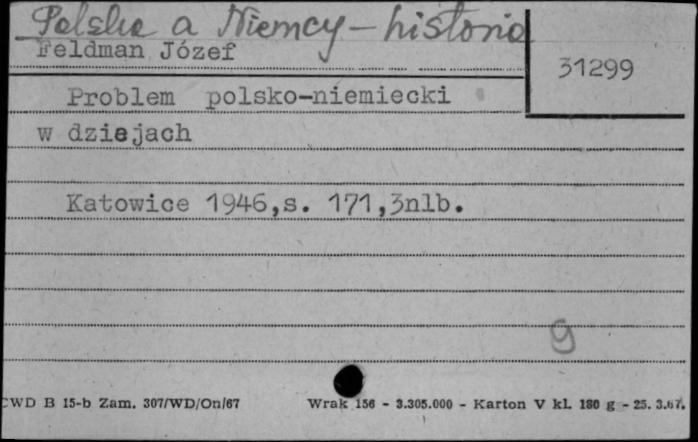 Polska a Niemcy - historia
Feldman Józef
31299
Problem polsko-niemiecki
w dziejach
Katowice 1946,s. 171,3nlb.
9
CWD B 15-b Zam. 307/WD/On/67 Wrak 156 - 3.305.000 - Karton V kl. 180 g - 25. 3.67.